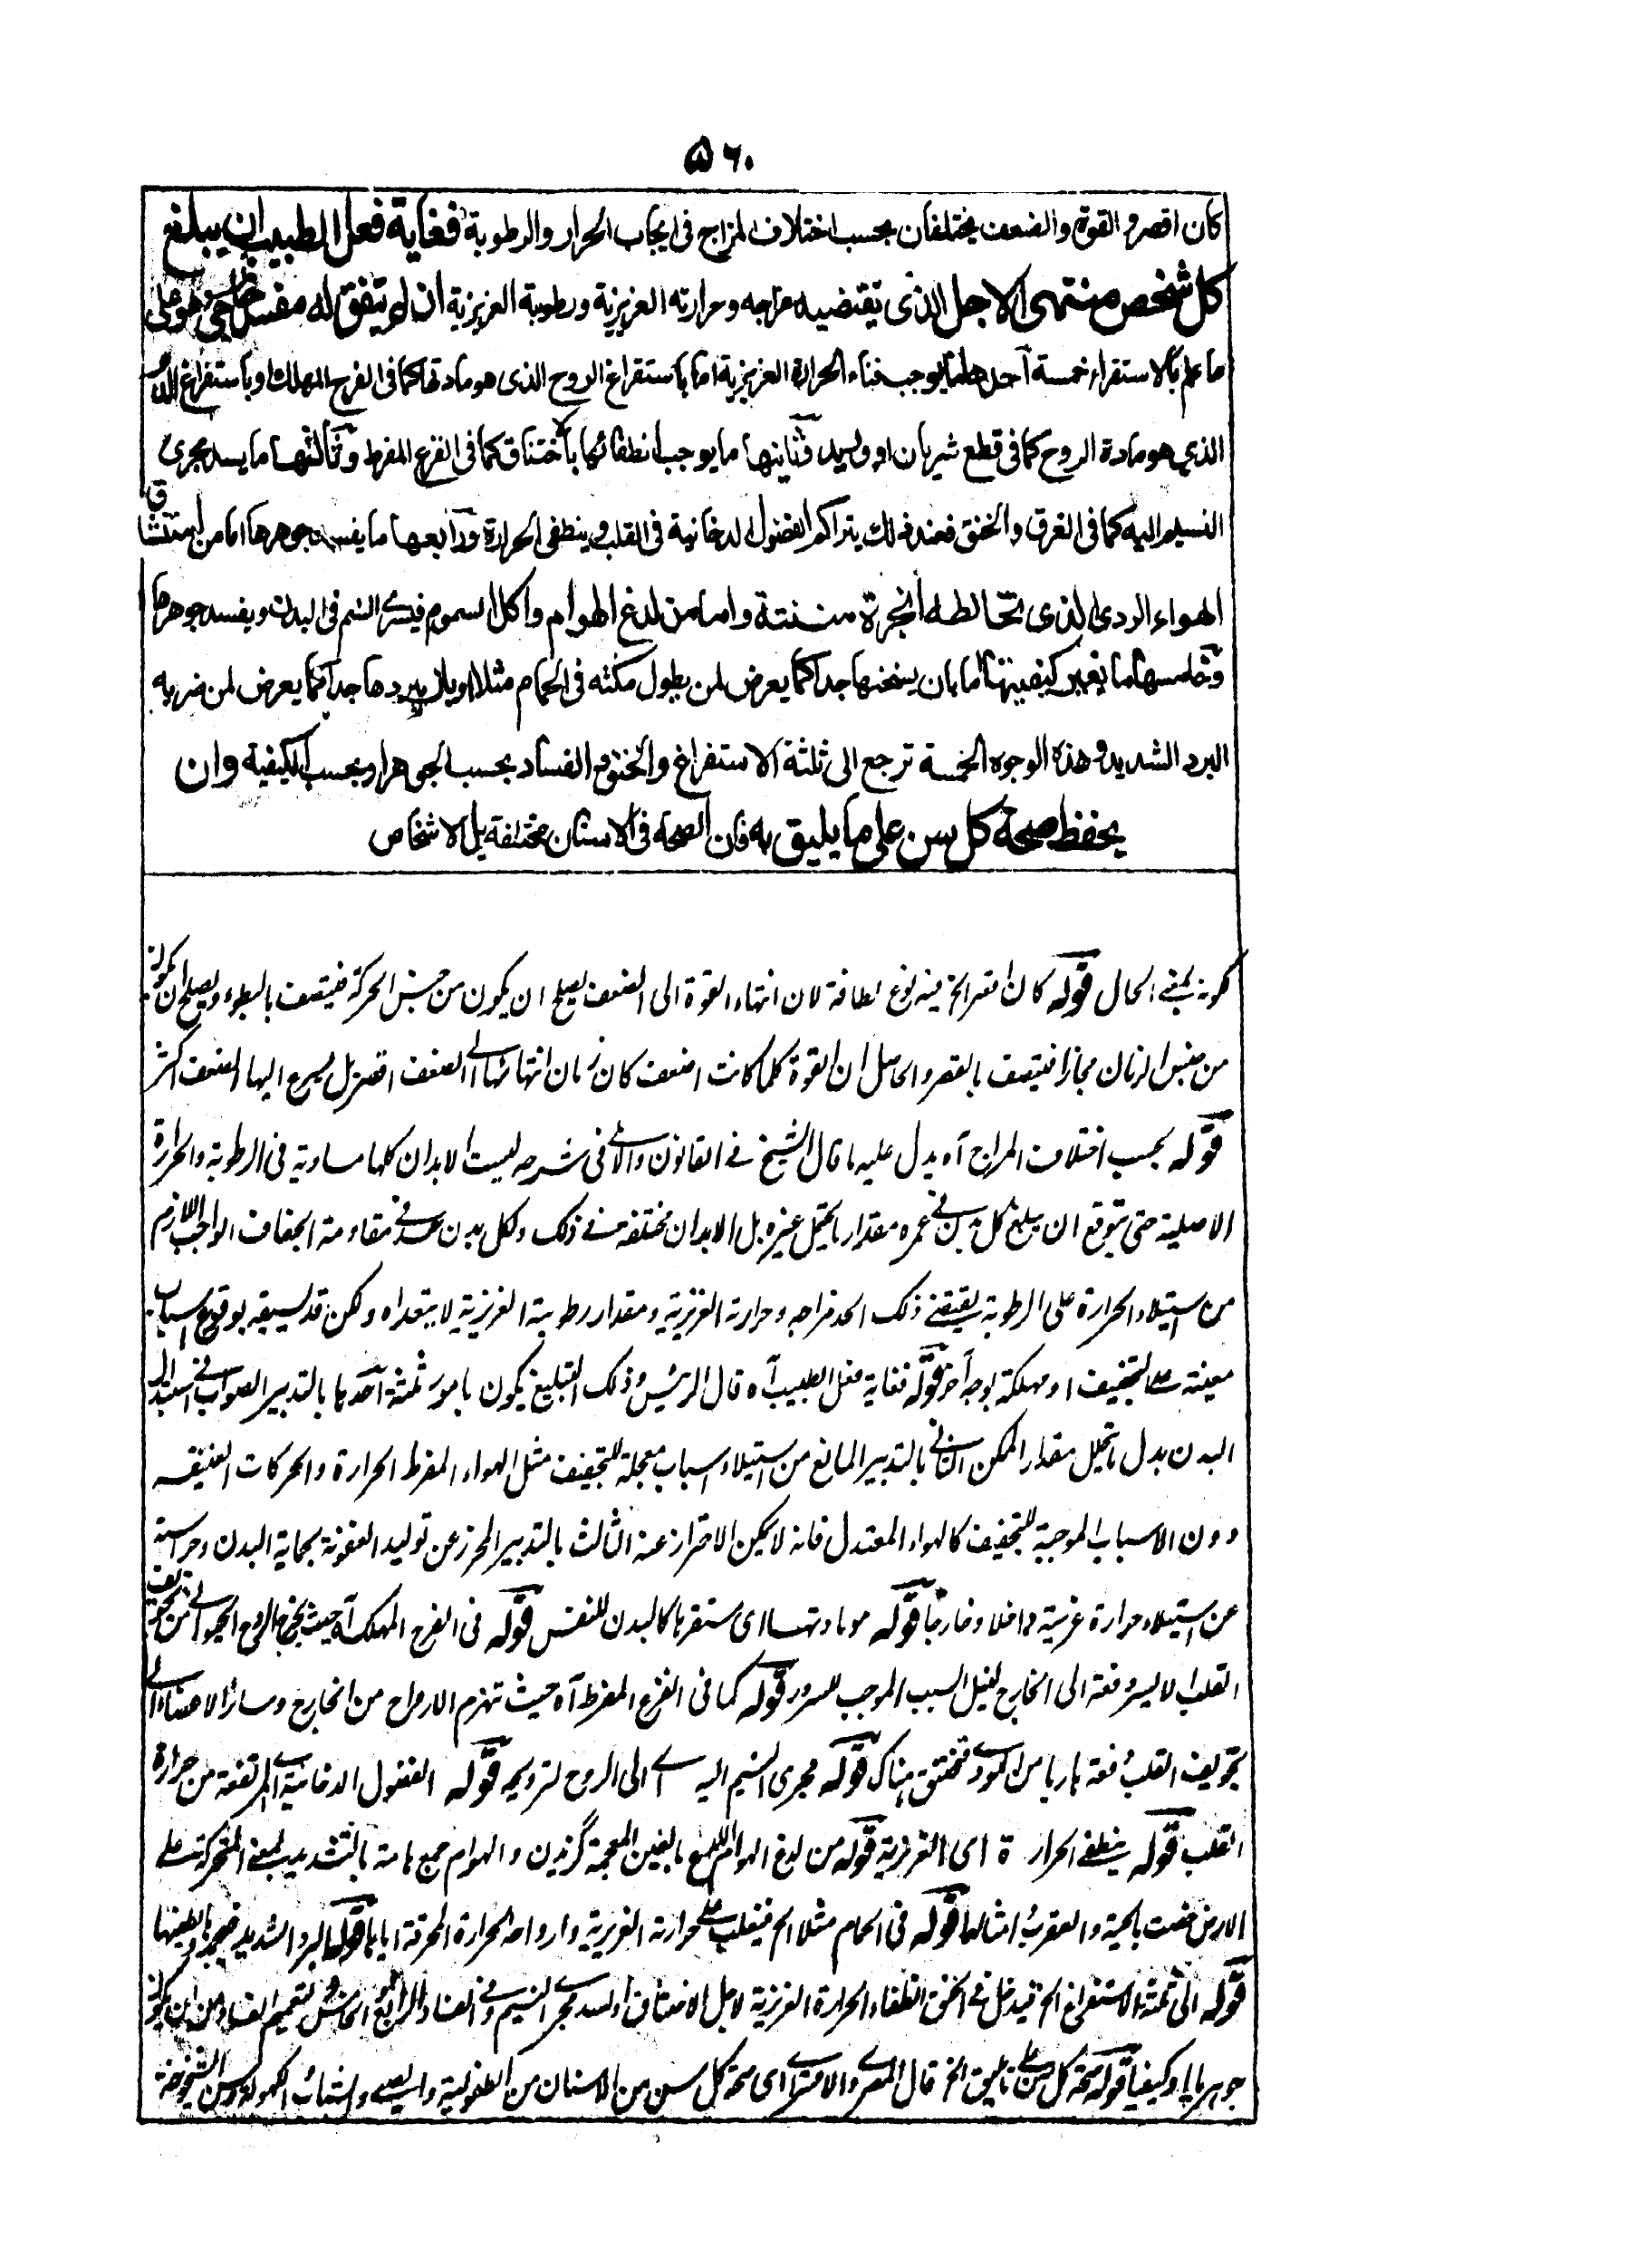 ۵۶۰
كان اقصر و القوة والضعف يختلفان بحسب اختلاف المزاج فى ايجاب الحرار والرطوبة فغاية فعل الطبيب ان يبلغ
كل شخص منتهى الاجل الذى يقتضيه مزاجه وحرارته العزيزية ورطوبة العزيزية ان لم يتفق له مفسد خارجى وهو على
ما علم بالاستقراء خمسة احدها ما يوجب فناء الحرارة العزيزية اما باستفراغ الروح الذى هو مادتها كما فى الفرح المهلك او باستفراغ الدم
الذي هو مادة الروح كما فى قطع شريان او وريد وثانيها ما يوجب انطفائها بالاختناق كما فى الفزع المفرط وثالثها ما يسد مجرى
النسيم اليه كما فى الغرق والخنق فعند ذلك يتراكم الفضول الدخانية فى القلب وينطفى الحرارة ورابعها ما يفسد جوهرها اما من استنشاق
الهواء الردى الذى تخالطه ابخرة منتنة واما من لدغ الهوام واكل السموم فيسرى السم فى البدن ويفسد جوهرها
وخامسها ما يغير كيفيتها اما بان يسخنها جدا كما يعرض لمن يطول مكثه فى الحمام مثلا او بان يبردها جدا كما يعرض لمن ضربه
البرد الشديد وهذه الوجوه الخمسة ترجع الى ثلثة الاستفراغ والخنق والفساد بحسب الجوهر او بحسب الكيفية وان
يحفظ صحة كل سن على ما يليق به فان الصحة فى الاسنان مختلفة بل الاشخاص
كونه بمعنى الحال قوله كان اقصر الخ فيه نوع لطافة لان انتهاء القوة الى الضعف يصلح ان يكون من جنس الحركة فيتصف بالبطوء ويصلح ان يكون
من جنس الزمان مجازا فيتصف بالقصر والحاصل ان القوة كلما كانت اضعف كان زمان انتهائها الى الضعف اقصر بل يسرع اليها الضعف اكثر
قوله بحسب اختلاف المزاج آه يدل عليه ما قال الشيخ فى القانون والآملى فى شرحه ليست الابدان كلها مساوية فى الرطوبة والحرارة
الاصلية حتى يتوقع ان يبلغ كل بدن فى عمره مقدار ما يحتمل غيره بل الابدان مختلفة فى ذلك ولكل بدن حد فى مقاومة الجفاف الواجب اللازم
من استيلاء الحرارة على الرطوبة يقتضى ذلك الحد مزاجه وحرارته الغريزية ومقدار رطوبته الغريزية لا يتعداه ولكن قد يسبقه بوقوع اسباب
معينة على التجفيف او مهلكة بوجه آخر قوله فغاية فعل الطبيب آه قال الرئيس وذلك التبليغ يكون بامور ثلثة احدها بالتدبير الصواب فى استبدال
البدن بدل ما يتحلل مقدار الممكن الثانى بالتدبير المانع من استيلاء اسباب معجلة للتجفيف مثل الهواء المفرط الحرارة والحركات العنيفة
دون الاسباب الموجبة للتجفيف كالهواء المعتدل فانه لا يمكن الاحتراز عنه الثالث بالتدبير المحرز عن توليد العفونة بحماية البدن وحراسته
عن استيلاء حرارة غريبة داخلا وخارجا قوله هو مادتها اى مستقرها كالبدن للنفس قوله فى الفرح المهلك آه حيث يخرج الروح الحيوانى من تجويف
القلب لا ليسر دفعة الى الخارج لنيل السبب الموجب للسرور قوله كما فى الفزع المفرط آه حيث تهزم الارواح من الخارج وسائر الاعضاء الى
تجويف القلب دفعة هاربا من الموذى فتختنق هناك قوله مجرى النسيم اليه اى الى الروح لترويحه قوله الفضول الدخانية اى المرتفعة من حرارة
القلب قوله ينطفى الحرارة اى الغريزية قوله من لدغ الهوام اللدغ بالغين المعجمة گزيدن والهوام جمع هامة بالتشديد بمعنى المتحركة على
الارض خصت بالحية والعقرب وامثالها قوله فى الحمام مثلا الخ فيغلب على حرارته الغريزية وارواحه الحرارة المحرقة اياها قوله البرد الشديد فيجمدها ويطفيها
قوله الى ثلثة الاستفراغ الخ فيدخل فى الخنق انطفاء الحرارة الغريزية لاجل الاختناق او لسد مجرى النسيم وفى الفساد الرابع والخامس لتعميم الفساد من ان يكون
جوهريا او كيفيا قوله صحة كل سن على ما يليق الخ قال المصرى والاقسرائى اى صحة كل سن من الاسنان من الطفولية والصبى والشباب والكهولة وسن الشيخوخة